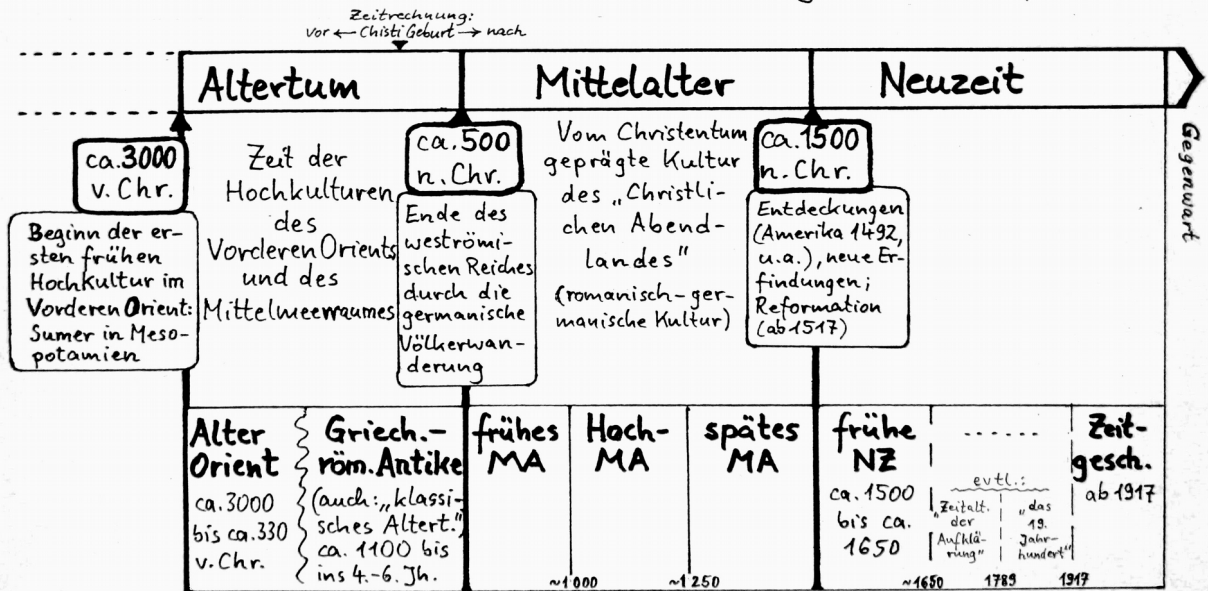 Zeitrechnung:
vor ← Chisti Geburt → nach
Altertum
Mittelalter
Neuzeit
Gegenwart
ca. 3000
v. Chr.
Beginn der er-
sten frühen
Hochkultur im
Vorderen Orient:
Sumer in Meso-
potamien
Zeit der
Hochkulturen
des
Vorderen Orients
und des
Mittelmeerraumes
ca. 500
n. Chr.
Ende des
weströmi-
schen Reiches
durch die
germanische
Völkerwan-
derung
Vom Christentum
geprägte Kultur
des „Christli-
chen Abend-
landes"
(romanisch-ger-
manische Kultur)
ca. 1500
n. Chr.
Entdeckungen
(Amerika 1492,
u.a.), neue Er-
findungen;
Reformation
(ab 1517)
Alter
Orient
ca. 3000
bis ca. 330
v. Chr.
Griech.-
röm. Antike
(auch: „klassi-
sches Altert.")
ca. 1100 bis
ins 4.-6. Jh.
frühes
MA
~1000
Hoch-
MA
~1250
spätes
MA
frühe
NZ
ca. 1500
bis ca.
1650
~1650
......
evtl.:
„Zeitalt.
der
Aufklä-
rung"
1789
„das
19.
Jahr-
hundert"
1917
Zeit-
gesch.
ab 1917